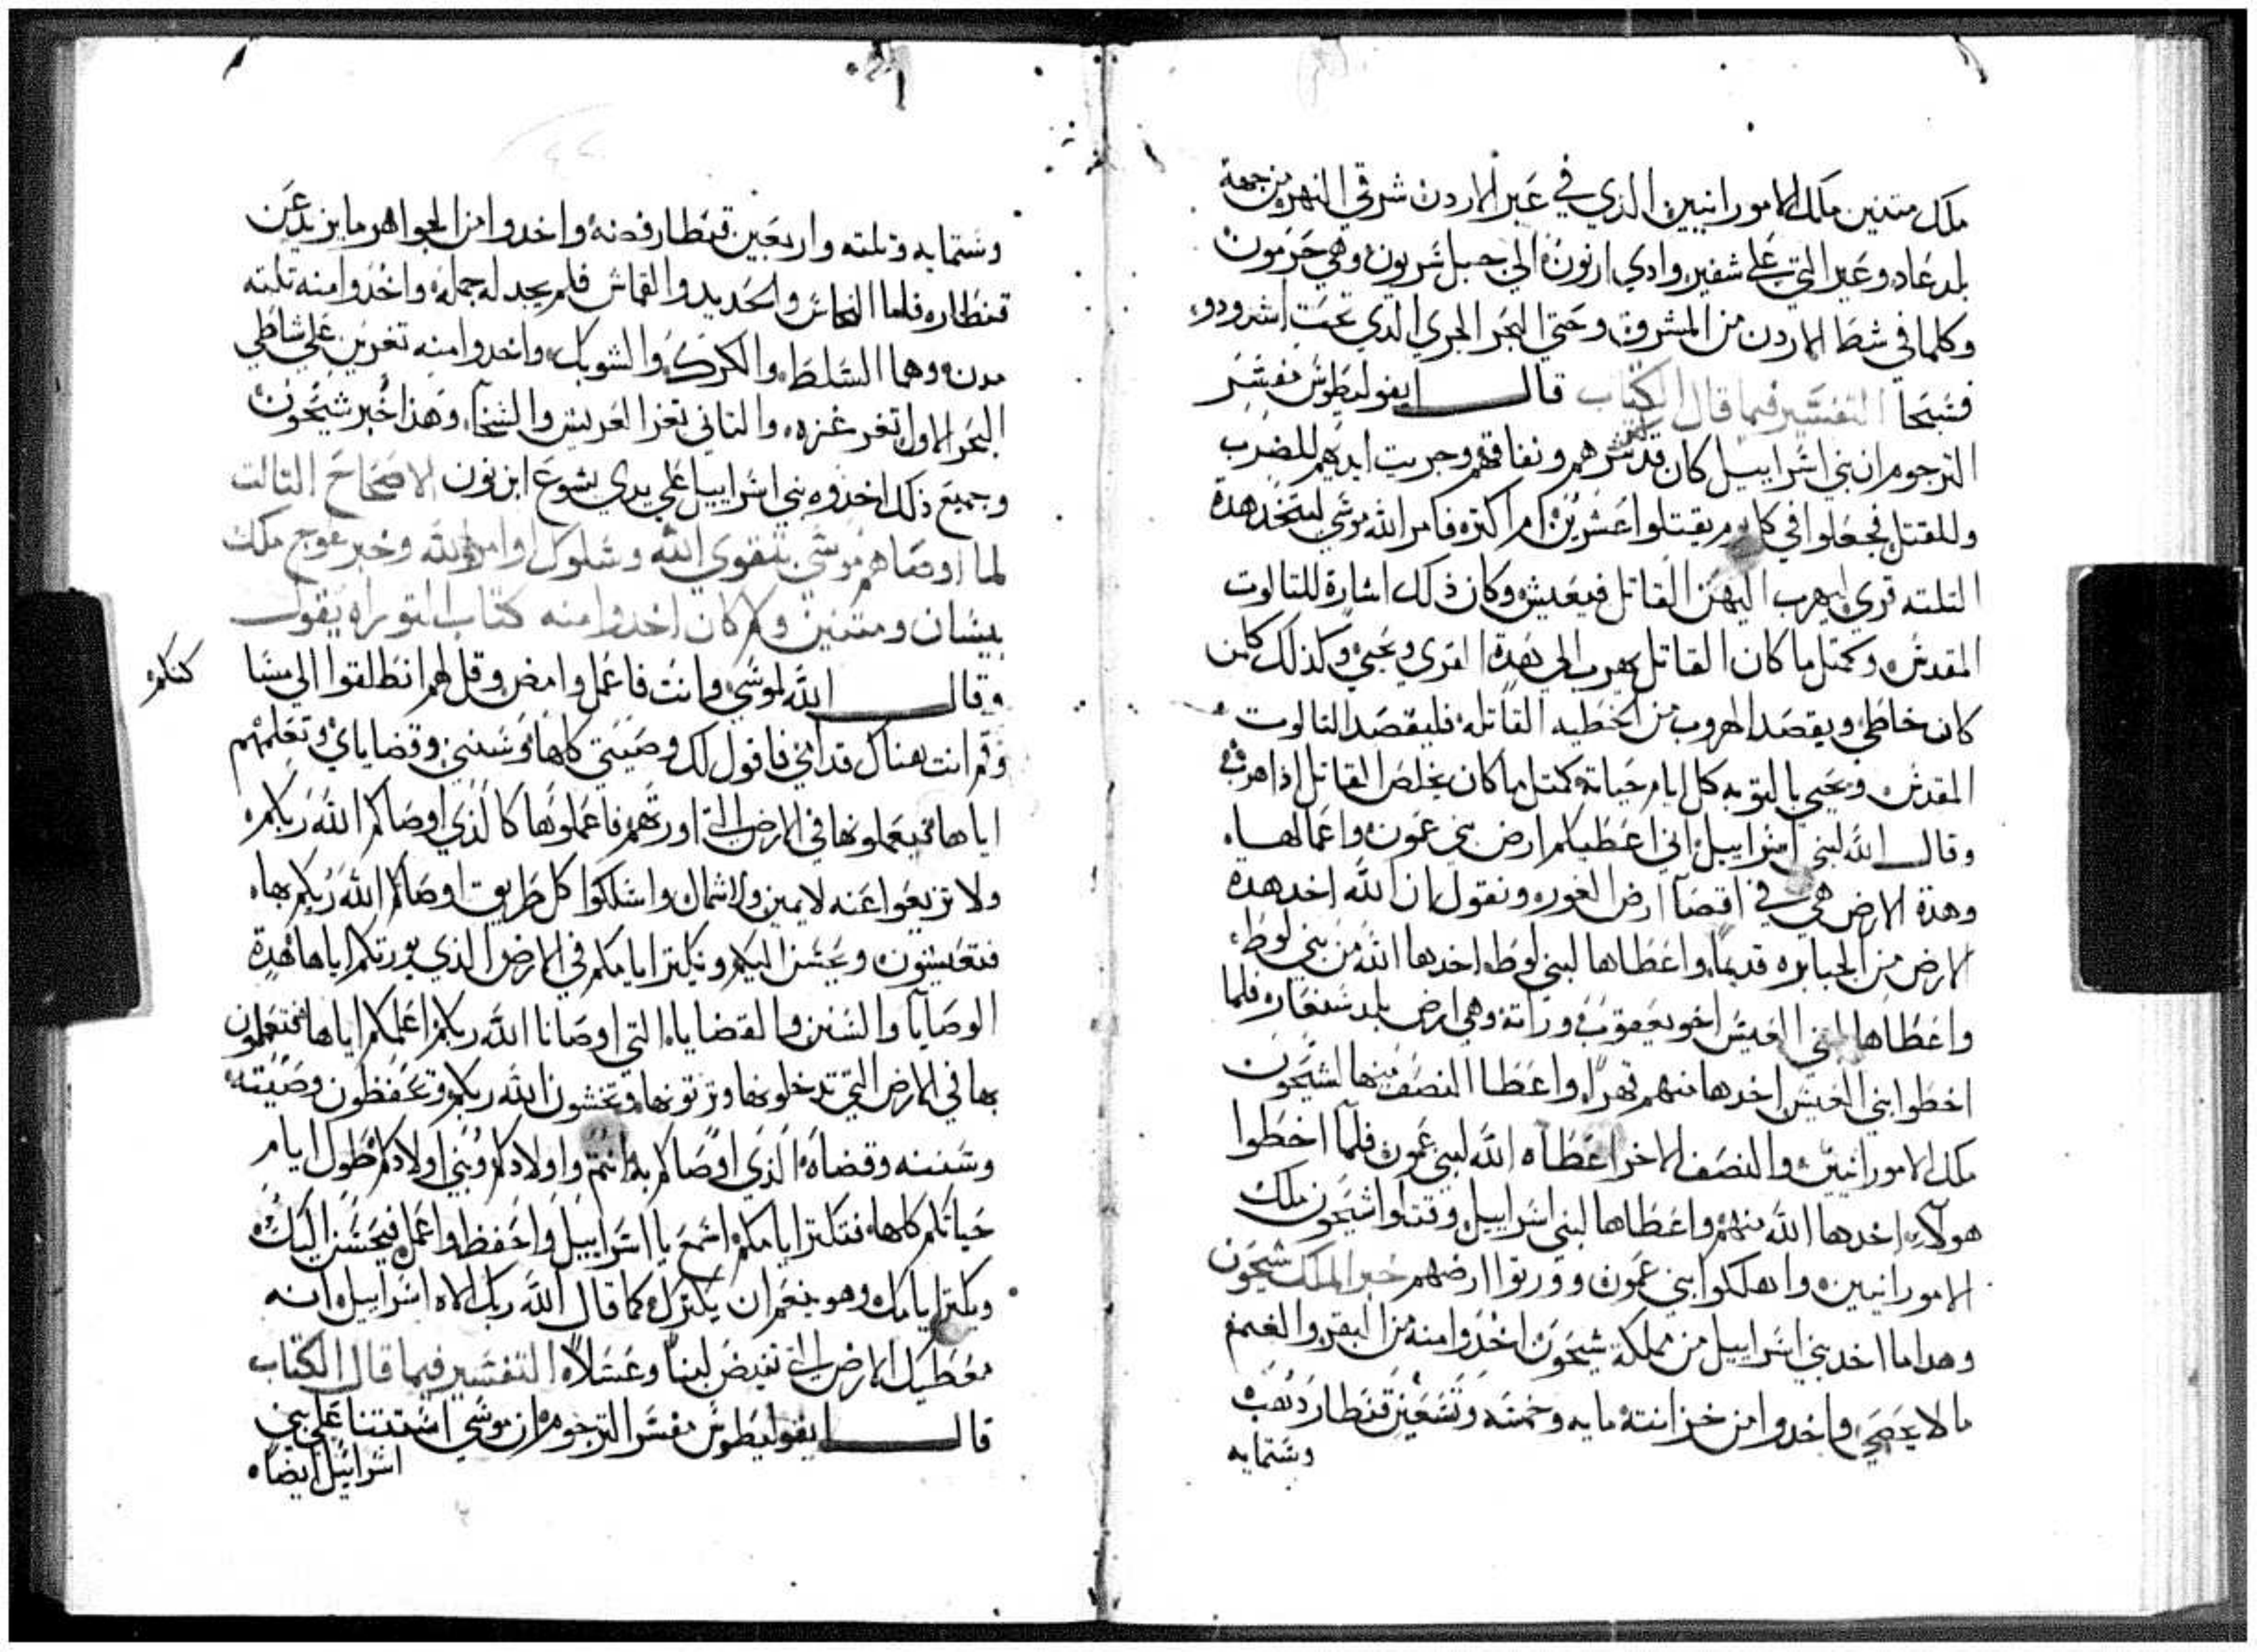 ملك متنين ملك الامورانيين الذي في عبر الاردن شرقي النهر من جهة
بلد عاد وعير التي على شفير وادي ارنون الى جبل شريون وهي حرمون
وكلما في شط الاردن من المشرق وحتي البحر الجري الذي تحت اشرودو
فسبحا التفسير فيما قال الكتاب قال ايفوليطوس مفسر
الترجوم ان بني اسراييل كان قد كتر شرهم ونفاقهم وجريت ايديهم للضرب
وللقتل فجعلوا في كل يوم يقتلوا عشرين ام اكتر فامر الله موسي ليتخد هدة
التلته قري ليهرب اليهن القاتل فيعيش وكان ذلك اشارة للتالوت
المقدس وكمتل ما كان القاتل يهرب الى هدة القري ويحيي وكذلك كلمن
كان خاطي ويقصد الهروب من الخطيه القاتله فليقصد التالوت
المقدس ويحيي بالتوبه كل ايام حياته كمتل ما كان يخلص القاتل اذا هرب
وقال الله لبني اسراييل اني اعطيكم ارض بني عمون واعمالها
وهدة الارض هي في اقصا ارض الغور ونقول ان الله اخد هدة
الارض من الجبابره قديما واعطاها لبني لوط اخدها الله من بني لوط
واعطاها لبني العيس اخو يعقوب وراتة وهي ارض بلد سنعار فلما
اخطوا بني العيس اخدها منهم قهرا واعطا النصف منها لشيحون
ملك الامورانيين والنصف الاخر اعطاه الله لبني عمون فلما اخطوا
هولاء اخدها الله منهم واعطاها لبني اسراييل وقتلوا شيحون ملك
الامورانيين واهلكوا بني عمون وورتوا ارضهم خبر الملك شيحون
وهدا ما اخد بني اسراييل من مملكة شيحون اخدوا منه من البقر والغنم
ما لا يحصي واخدوا من خزانته مايه وخمسه وتسعين قنطار دهب
وستمايه
وستمايه وتلته واربعين قنطار فضه واخدوا من الجواهر ما يزيد عن
قنطار فاما النحاس والحديد والقماش فلم يجد له جمله واخدوا منه تلته
مدن وهما السلط والكرك والشوبك واخدوا منه تغرين علي شاطي
البحر الاول تغر غزه والتاني تغر العريش والشخا وهذا خبر شيحون
وجميع ذلك اخدوه بني اسراييل علي يدي يشوع ابن نون الاصحاح التالت
لما اوصاهم موسي بتقوي الله وسلوك اوامر الله وخبر عوج ملك
بيسان ومتنين وكم كان اخدوا منه كتاب التوراه يقول
وقال الله لموسي وانت فاعمل وامض وقل لهم انطلقوا الي مسا
كنكم
وقم انت هناك قدامي فاقول لك وصيتي كلها وسنني وقضاياي وتعلمهم
اياها فيعملونها في الارض التي اورتهم فاعملوها كالذي اوصاكم الله ربكم
ولا تزيغوا عنه لا يمين ولا شمال واسلكوا كل طريق اوصاكم الله ربكم بها
فتعيشون ويحسن اليكم وتكتر ايامكم في الارض الذي يورتكم اياها هدة
الوصايا والسنن والقضايا التي اوصانا الله ربكم اعلمكم اياها فتعملون
بها في الارض التي تدخلونها وترتونها وتخشون الله ربكم وتحفظون وصيته
وسننه وقضاه الذي اوصاكم به انتم واولادكم وبني اولادكم طول ايام
حياتكم كلها فتكتر ايامكم اسمع يا اسراييل واحفظ واعمل فيحسن اليك
ويكتر ايامك وهو ينعم ان يكترك كما قال الله ربك الاه اسراييل انه
معطيك الارض التي تفيض لبنا وعسلا التفسير فيما قال الكتاب
قال ايفوليطوس مفسر الترجوم ان موسي استتنا علي بني
اسراييل ايضا